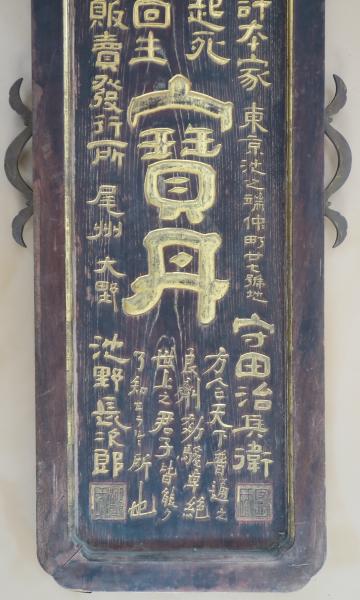 許本家 東京池之端仲町廿七號地 守田治兵衛
起死
回生
寶丹
方今天下普通之
良劑効驗卓絶
世上之君子皆能
了知する所也
販賣發行所 尾州 大野 池野長次郎